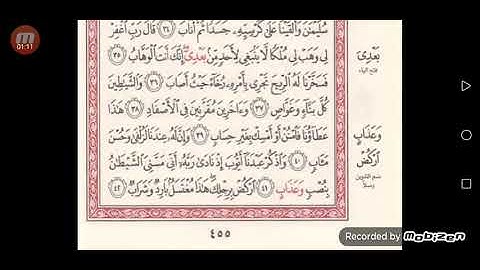 01:11
سُلَيْمَٰنَ وَأَلْقَيْنَا عَلَىٰ كُرْسِيِّهِۦ جَسَدًا ثُمَّ أَنَابَ ٣٤ قَالَ رَبِّ ٱغْفِرْ
لِى وَهَبْ لِى مُلْكًا لَّا يَنۢبَغِى لِأَحَدٍ مِّنۢ بَعْدِىَ إِنَّكَ أَنتَ ٱلْوَهَّابُ ٣٥
فَسَخَّرْنَا لَهُ ٱلرِّيحَ تَجْرِى بِأَمْرِهِۦ رُخَآءً حَيْثُ أَصَابَ ٣٦ وَٱلشَّيَٰطِينَ
كُلَّ بَنَّآءٍ وَغَوَّاصٍ ٣٧ وَءَاخَرِينَ مُقَرَّنِينَ فِى ٱلْأَصْفَادِ ٣٨ هَٰذَا
عَطَآؤُنَا فَٱمْنُنْ أَوْ أَمْسِكْ بِغَيْرِ حِسَابٍ ٣٩ وَإِنَّ لَهُۥ عِندَنَا لَزُلْفَىٰ وَحُسْنَ
مَـَٔابٍ ٤٠ وَٱذْكُرْ عَبْدَنَآ أَيُّوبَ إِذْ نَادَىٰ رَبَّهُۥٓ أَنِّى مَسَّنِىَ ٱلشَّيْطَٰنُ
بِنُصْبٍ وَعَذَابٍ ٤١ ٱرْكُضْ بِرِجْلِكَ هَٰذَا مُغْتَسَلٌۢ بَارِدٌ وَشَرَابٌ ٤٢
بَعْدِىَ
فتح الياء
وَعَذَابٍ
ٱرْكُضْ
ضم التنوين
وصلاً
٤٥٥
Recorded by Mobizen